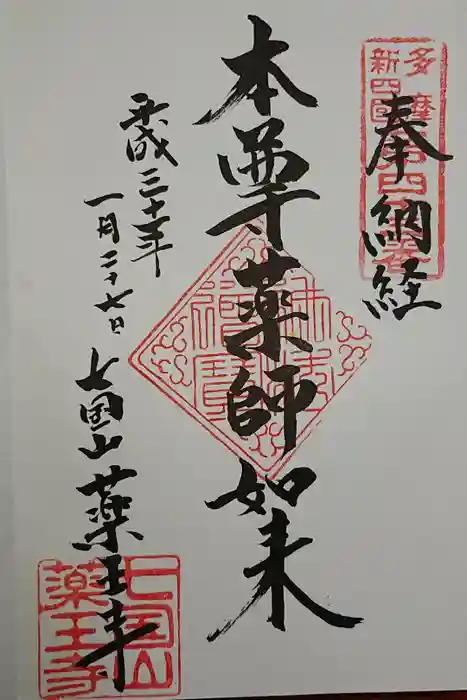 奉納経
本尊薬師如来
平成三十年
一月二十七日
七国山薬王寺
多摩
新四国
佛法僧寳
七国山
薬王寺